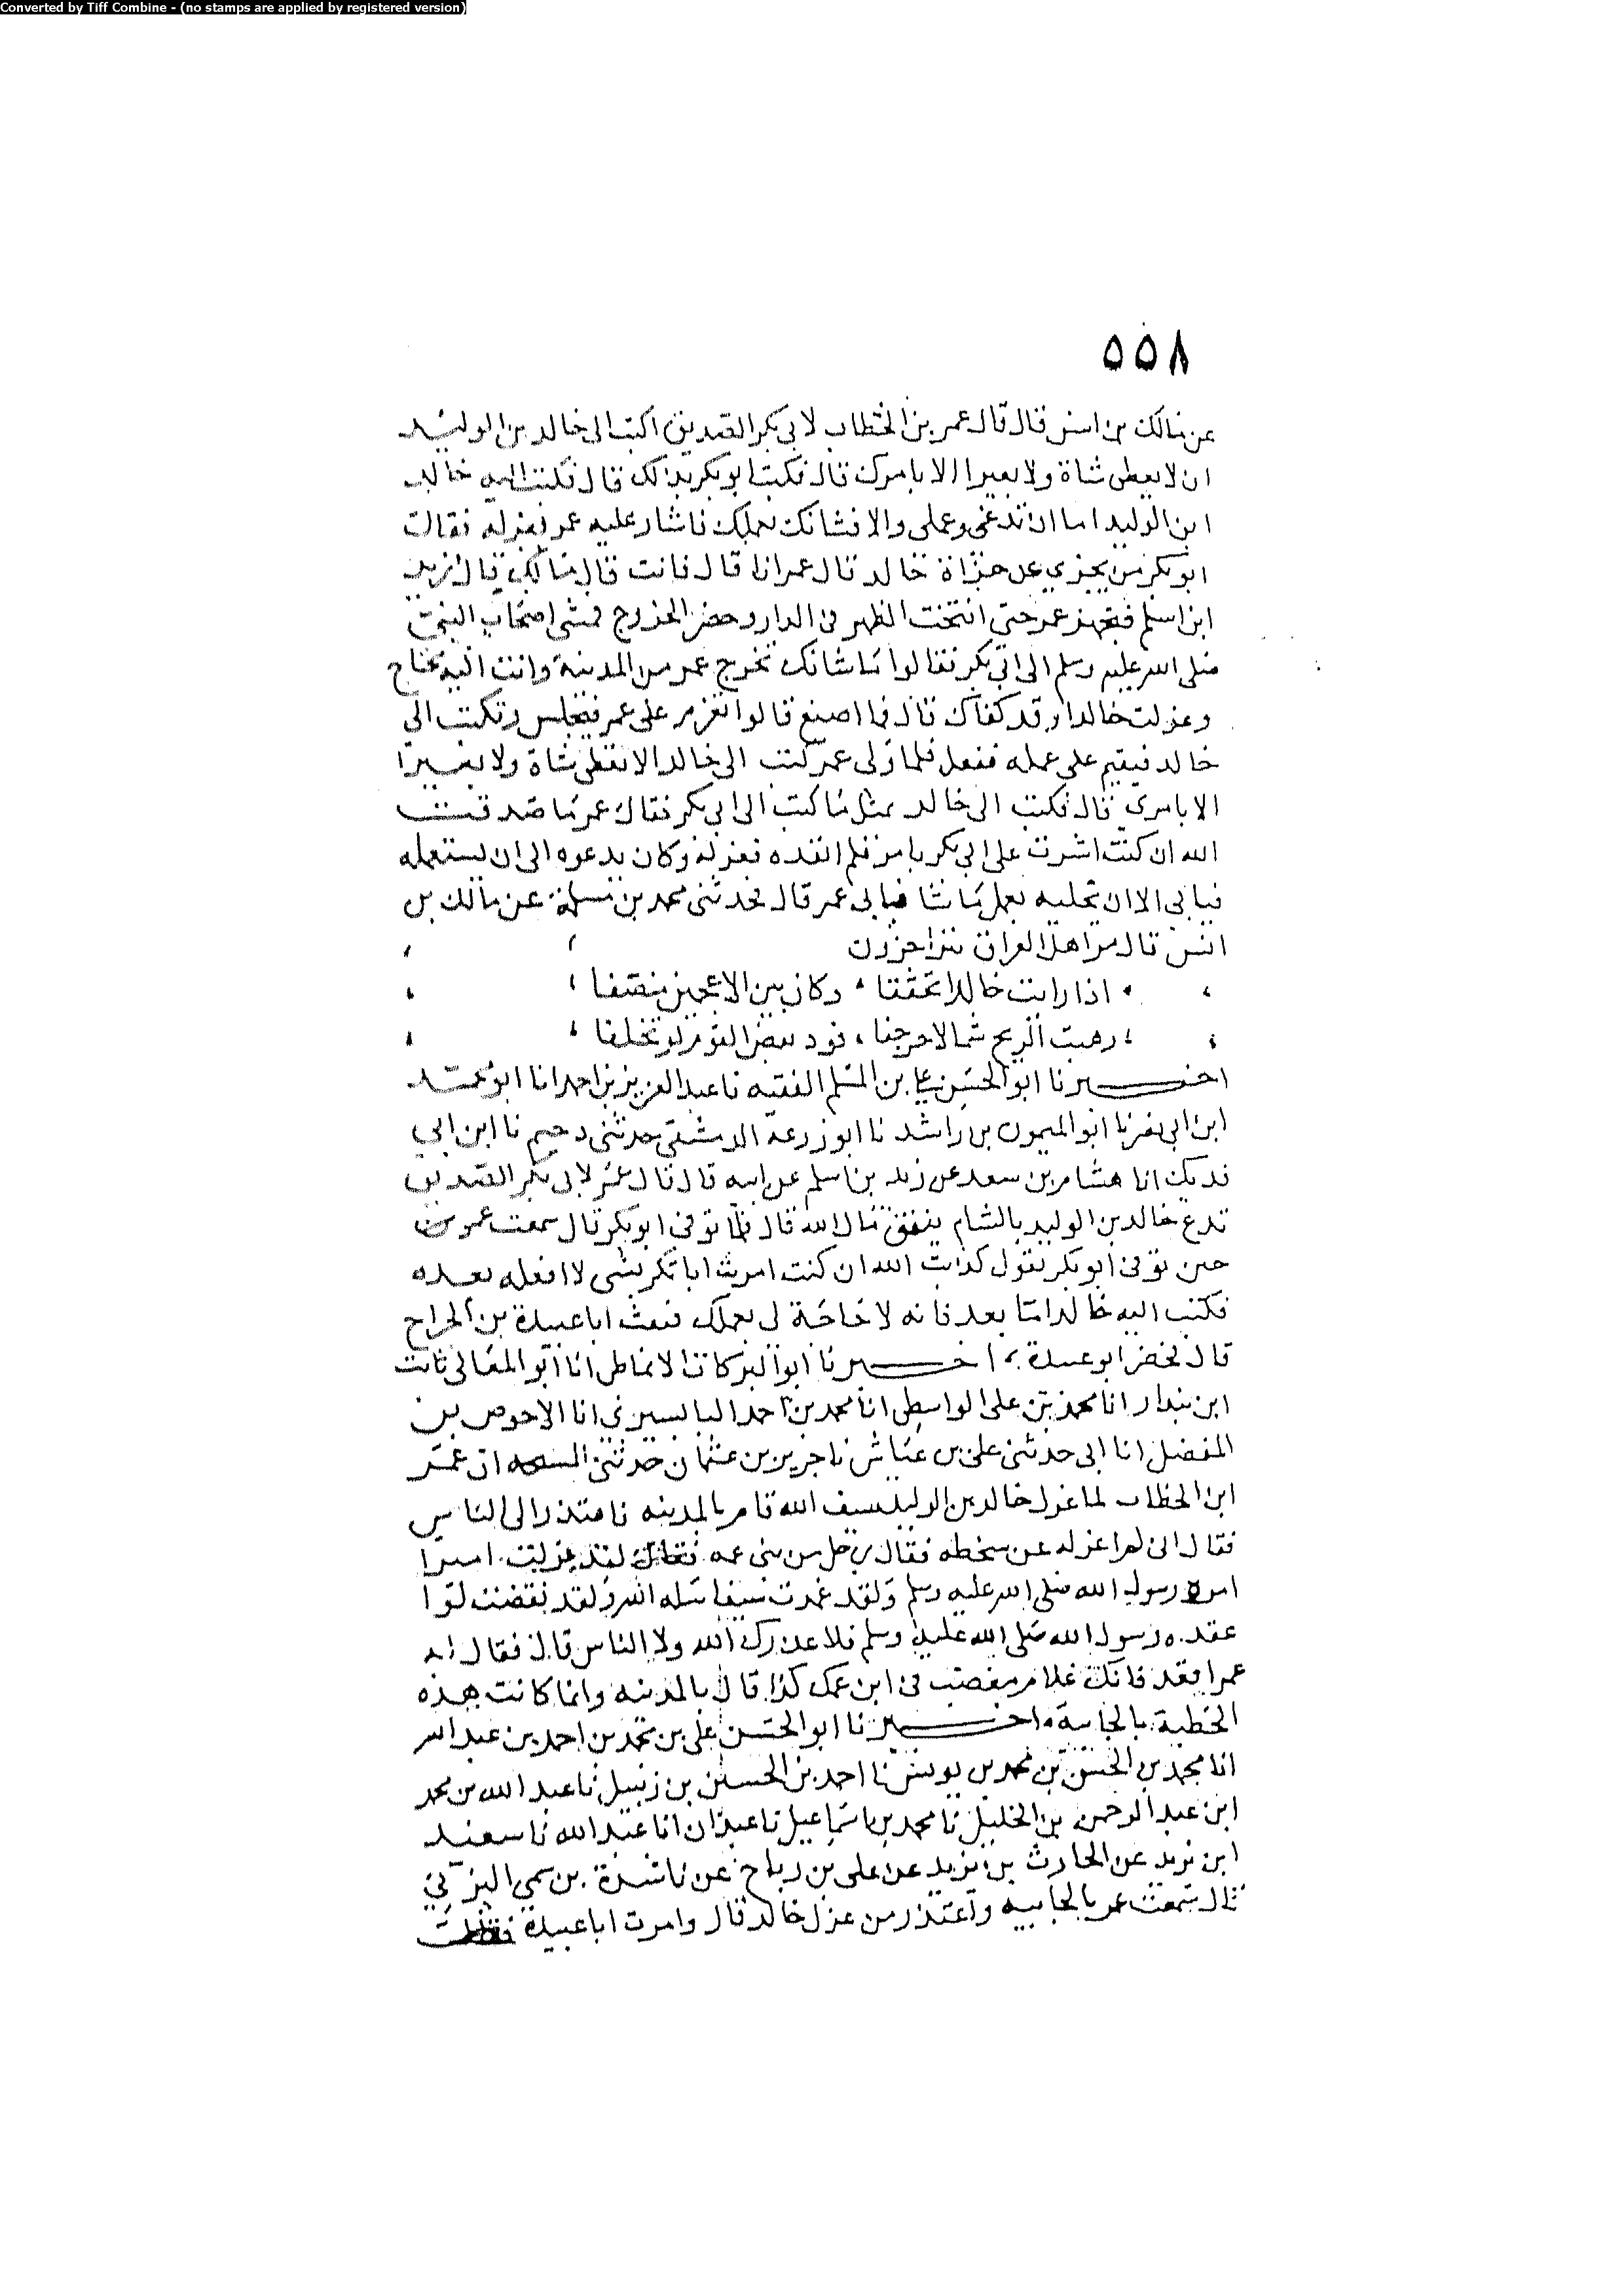 Converted by Tiff Combine - (no stamps are applied by registered version)
٥٥٨
عن مالك بن انس قال قال عمر بن الخطاب لابي بكر الصديق اكتب الى خالد بن الوليد
ان لا يعطى شاة ولا بعيرا الا بامرك قال فكتب ابو بكر بذلك قال فكتب اليه خالد
ابن الوليد اما ان تدعني وعملي والا فشانك بعملك فاشار عليه عمر بعزله فقال
ابو بكر من يجزي عن جزاة خالد قال عمر انا قال فانت قال مالك قال زيد
ابن اسلم فتجهز عمر حتى انتخت الظهر في الدار وحضر الخروج فمشى اصحاب النبي
صلى الله عليه وسلم الى ابي بكر فقالوا ما شانك تخرج عمر من المدينة وانت اليه محتاج
وعزلت خالدا وقد كفاك قال فما اصنع قالوا تعزم على عمر فيجلس وتكتب الى
خالد فيقيم على عمله ففعل فلما ولى عمر كتب الى خالد الا تعطى شاة ولا بعيرا
الا بامري قال فكتب الى خالد بمثل ما كتب الى ابي بكر فقال عمر ما صدقت
الله ان كنت اشرت على ابي بكر بامر فلم انفذه فعزله وكان يدعوه الى ان يستعمله
فيابى الا ان يخليه يعمل ما شا فيابى عمر قال فحدثني محمد بن مسلمة عن مالك بن
انس قال مر اهل العراق يتراجزون
اذا رايت خالدا تخففا وكان بين الاعجمين منصفا
وهبت الريح شمالا حرجفا فود بعض القوم لو تخلفا
اخبرنا ابو الحسن علي بن المسلم الفقيه نا عبد العزيز بن احمد انا ابو محمد
ابن ابي نصر نا ابو الميمون بن راشد نا ابو زرعه الدمشقي حدثني دحيم نا ابن ابي
فديك انا هشام بن سعد عن زيد بن اسلم عن ابيه قال قال عمر لابي بكر الصديق
تدع خالد بن الوليد بالشام ينفق مال الله قال فلما توفي ابو بكر قال سمعت عمر
حين توفي ابو بكر يقول كذبت الله ان كنت امرت ابا بكر بشى لا افعله بعده
فكتب اليه خالد اما بعد فانه لا حاجة لي بعملك فبعث ابا عبيدة بن الجراح
قال فحضر ابو عبيدة اخبرنا ابو البركات الانماطي انا ابو المعالي ثابت
ابن بندار انا محمد بن علي الواسطي انا محمد بن احمد البابسيري انا الاحوص بن
المفضل انا ابي حدثني علي بن عياش نا حريز بن عثمان حدثني ان عمر
ابن الخطاب لما عزل خالد بن الوليد سيف الله قام بالمدينه فاعتذر الى الناس
فقال اني لم اعزله عن سخطه فقال رجل من بني عمه لقد عزلت اميرا
امره رسول الله صلى الله عليه وسلم ولقد غمدت سيفا سله الله ولقد نقضت لوا
عقده رسول الله صلى الله عليه وسلم فلا عذرك الله ولا الناس قال فقال له
عمر اقعد فانك غلام مغضب في ابن عمك كذا قال بالمدينه وانما كانت هذه
الخطبة بالجابية اخبرنا ابو الحسن علي بن محمد بن احمد بن عبد الله
انا محمد بن الحسن بن محمد بن يونس نا احمد بن الحسين بن زنبيل نا عبد الله بن محمد
ابن عبد الرحمن بن الخليل نا محمد بن اسماعيل نا عبدان انا عبد الله نا سعيد
ابن يزيد عن الحارث بن يزيد عن علي بن رباح عن ناشرة بن سمي اليزني
قال سمعت عمر بالجابيه واعتذر من عزل خالد قال وامرت ابا عبيدة